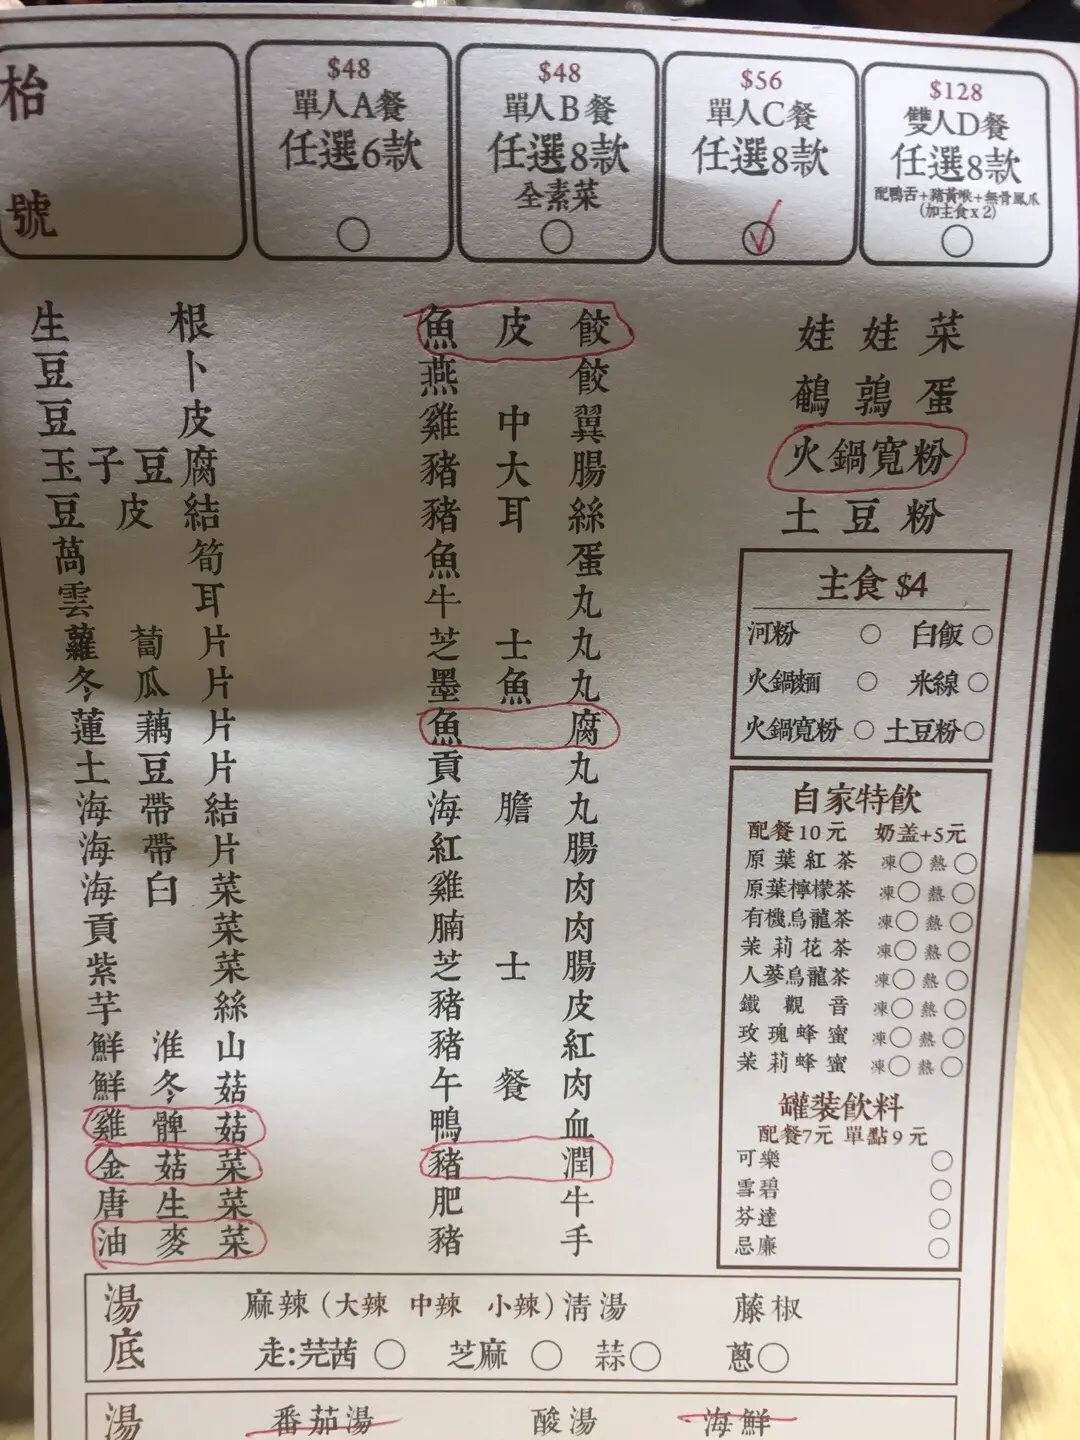 枱號
$48
單人A餐
任選6款
$48
單人B餐
任選8款
全素菜
$56
單人C餐
任選8款
$128
雙人D餐
任選8款
配鴨舌+豬黃喉+無骨鳳爪
(加主食x2)
生根
豆卜
豆皮
玉子豆腐
豆皮結
萵筍
雲耳
蘿蔔片
冬瓜片
蓮藕片
土豆片
海帶結
海帶片
海白菜
貢菜
紫菜
芋絲
鮮淮山
鮮冬菇
雞髀菇
金菇菜
唐生菜
油麥菜
魚皮餃
燕餃
雞中翼
豬大腸
豬耳絲
魚蛋
牛丸
芝士丸
墨魚丸
魚腐
貢丸
海膽丸
紅腸
雞肉
腩肉
芝士腸
豬皮
豬紅
午餐肉
鴨血
豬潤
肥牛
豬手
娃娃菜
鵪鶉蛋
火鍋寬粉
土豆粉
主食 $4
河粉 白飯
火鍋麵 米線
火鍋寬粉 土豆粉
自家特飲
配餐10元 奶盖+5元
原葉紅茶 凍 熱
原葉檸檬茶 凍 熱
有機烏龍茶 凍 熱
茉莉花茶 凍 熱
人蔘烏龍茶 凍 熱
鐵觀音 凍 熱
玫瑰蜂蜜 凍 熱
茉莉蜂蜜 凍 熱
罐裝飲料
配餐7元 單點9元
可樂
雪碧
芬達
忌廉
湯底
麻辣(大辣 中辣 小辣) 清湯 藤椒
走:芫茜 芝麻 蒜 蔥
湯
番茄湯 酸湯 海鮮